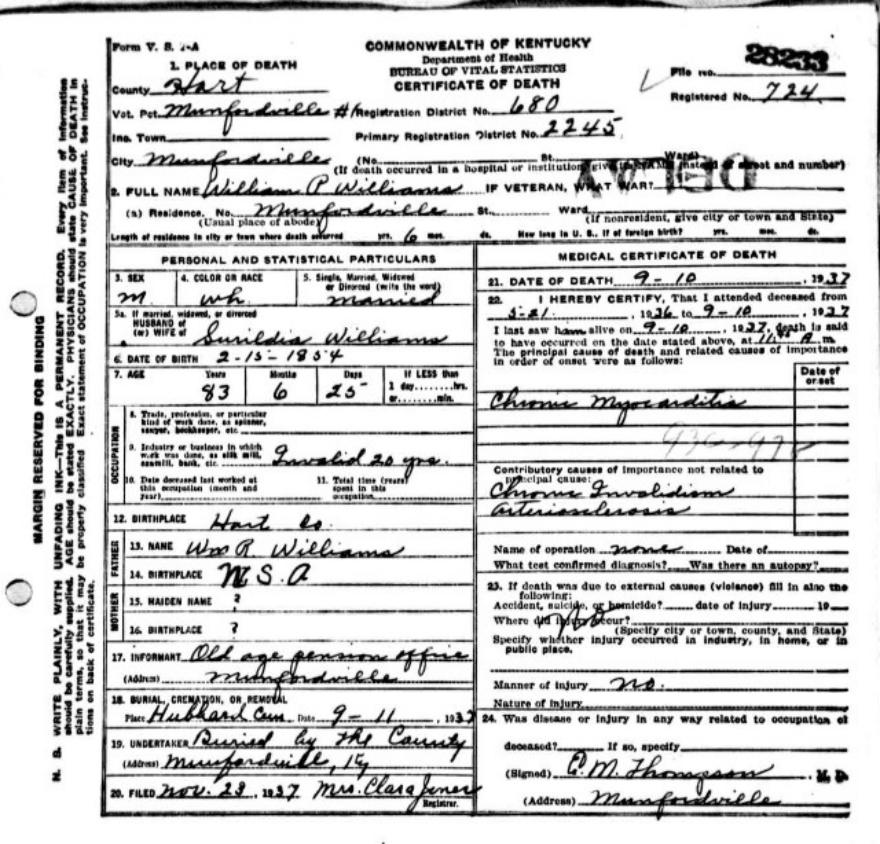 Form V. S. 1-A
COMMONWEALTH OF KENTUCKY
Department of Health
BUREAU OF VITAL STATISTICS
CERTIFICATE OF DEATH
28233
File No.
Registered No. 724
1. PLACE OF DEATH
County Hart
Vot. Pct. Munfordville #1 Registration District No. 680
Inc. Town Primary Registration District No. 2245
City Munfordville (No. St. Ward)
(If death occurred in a hospital or institution, give its NAME instead of street and number)
2. FULL NAME William P Williams IF VETERAN, WHAT WAR?
(a) Residence. No. Munfordville St., Ward
(Usual place of abode) (If nonresident, give city or town and State)
Length of residence in city or town where death occurred yrs. 6 mos. ds. How long in U. S., if of foreign birth? yrs. mos. ds.
PERSONAL AND STATISTICAL PARTICULARS
3. SEX
M
4. COLOR OR RACE
wh.
5. Single, Married, Widowed
or Divorced (write the word)
married
5a. If married, widowed, or divorced
HUSBAND of
(or) WIFE of Surildia Williams
6. DATE OF BIRTH 2-15-1854
7. AGE Years Months Days If LESS than
83 6 25 1 day, hrs.
or min.
OCCUPATION
8. Trade, profession, or particular
kind of work done, as spinner,
sawyer, bookkeeper, etc.
9. Industry or business in which
work was done, as silk mill,
sawmill, bank, etc. Invalid 20 yrs.
10. Date deceased last worked at
this occupation (month and
year)
11. Total time (years)
spent in this
occupation
12. BIRTHPLACE Hart Co
FATHER
13. NAME Wm R. Williams
14. BIRTHPLACE U S A
MOTHER
15. MAIDEN NAME ?
16. BIRTHPLACE ?
17. INFORMANT Old age pension office
(Address) Munfordville
18. BURIAL, CREMATION, OR REMOVAL
Place Hubbard Cem. Date 9-11, 1937
19. UNDERTAKER Buried by the County
(Address) Munfordville, Ky
20. FILED Nov. 23, 1937 Mrs. Clara Jones
Registrar.
MEDICAL CERTIFICATE OF DEATH
21. DATE OF DEATH 9-10, 1937
22. I HEREBY CERTIFY, That I attended deceased from
5-21, 1936 to 9-10, 1937
I last saw him alive on 9-10, 1937, death is said
to have occurred on the date stated above, at A m.
The principal cause of death and related causes of importance
in order of onset were as follows:
Date of
onset
Chronic Myocarditis
Contributory causes of importance not related to
principal cause:
Chronic Invalidism
arteriosclerosis
Name of operation none Date of
What test confirmed diagnosis? Was there an autopsy?
23. If death was due to external causes (violence) fill in also the
following:
Accident, suicide, or homicide? date of injury 19
Where did injury occur? No
(Specify city or town, county, and State)
Specify whether injury occurred in industry, in home, or in
public place.
Manner of injury no.
Nature of injury
24. Was disease or injury in any way related to occupation of
deceased? If so, specify
(Signed) C. M. Thompson, M. D.
(Address) Munfordville
MARGIN RESERVED FOR BINDING
N. B. WRITE PLAINLY, WITH UNFADING INK—This IS A PERMANENT RECORD. Every item of information
should be carefully supplied. AGE should be stated EXACTLY. PHYSICIANS should state CAUSE OF DEATH in
plain terms, so that it may be properly classified. Exact statement of OCCUPATION is very important. See instruc-
tions on back of certificate.